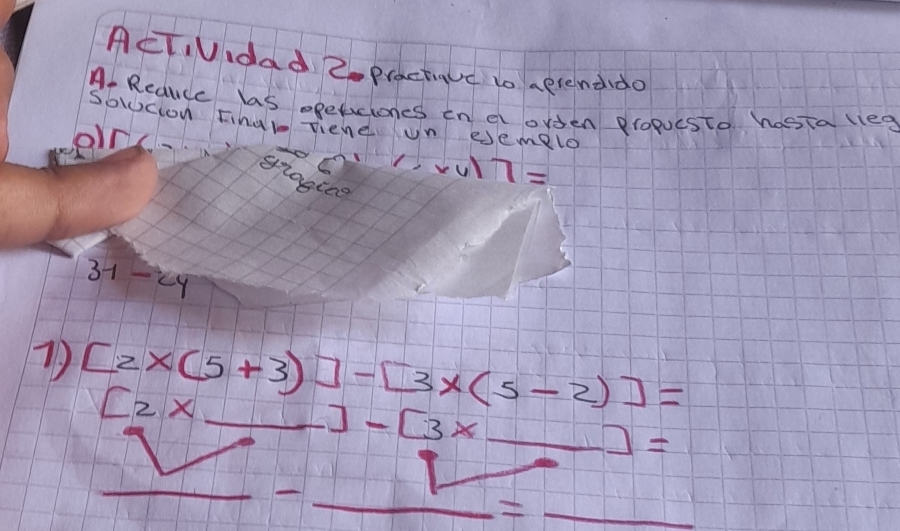 ACTIVIdad 2. Practique lo aprendido
A. Reduce las operaciones en el orden propuesto hasta lleg
Solucion Final. Tiene un ejemplo
xu)] =
31 - 24
1) [2 × (5 + 3)] - [3 × (5 - 2)] =
[2 × ____] - [3 × ____] =
____ - ____ = ____